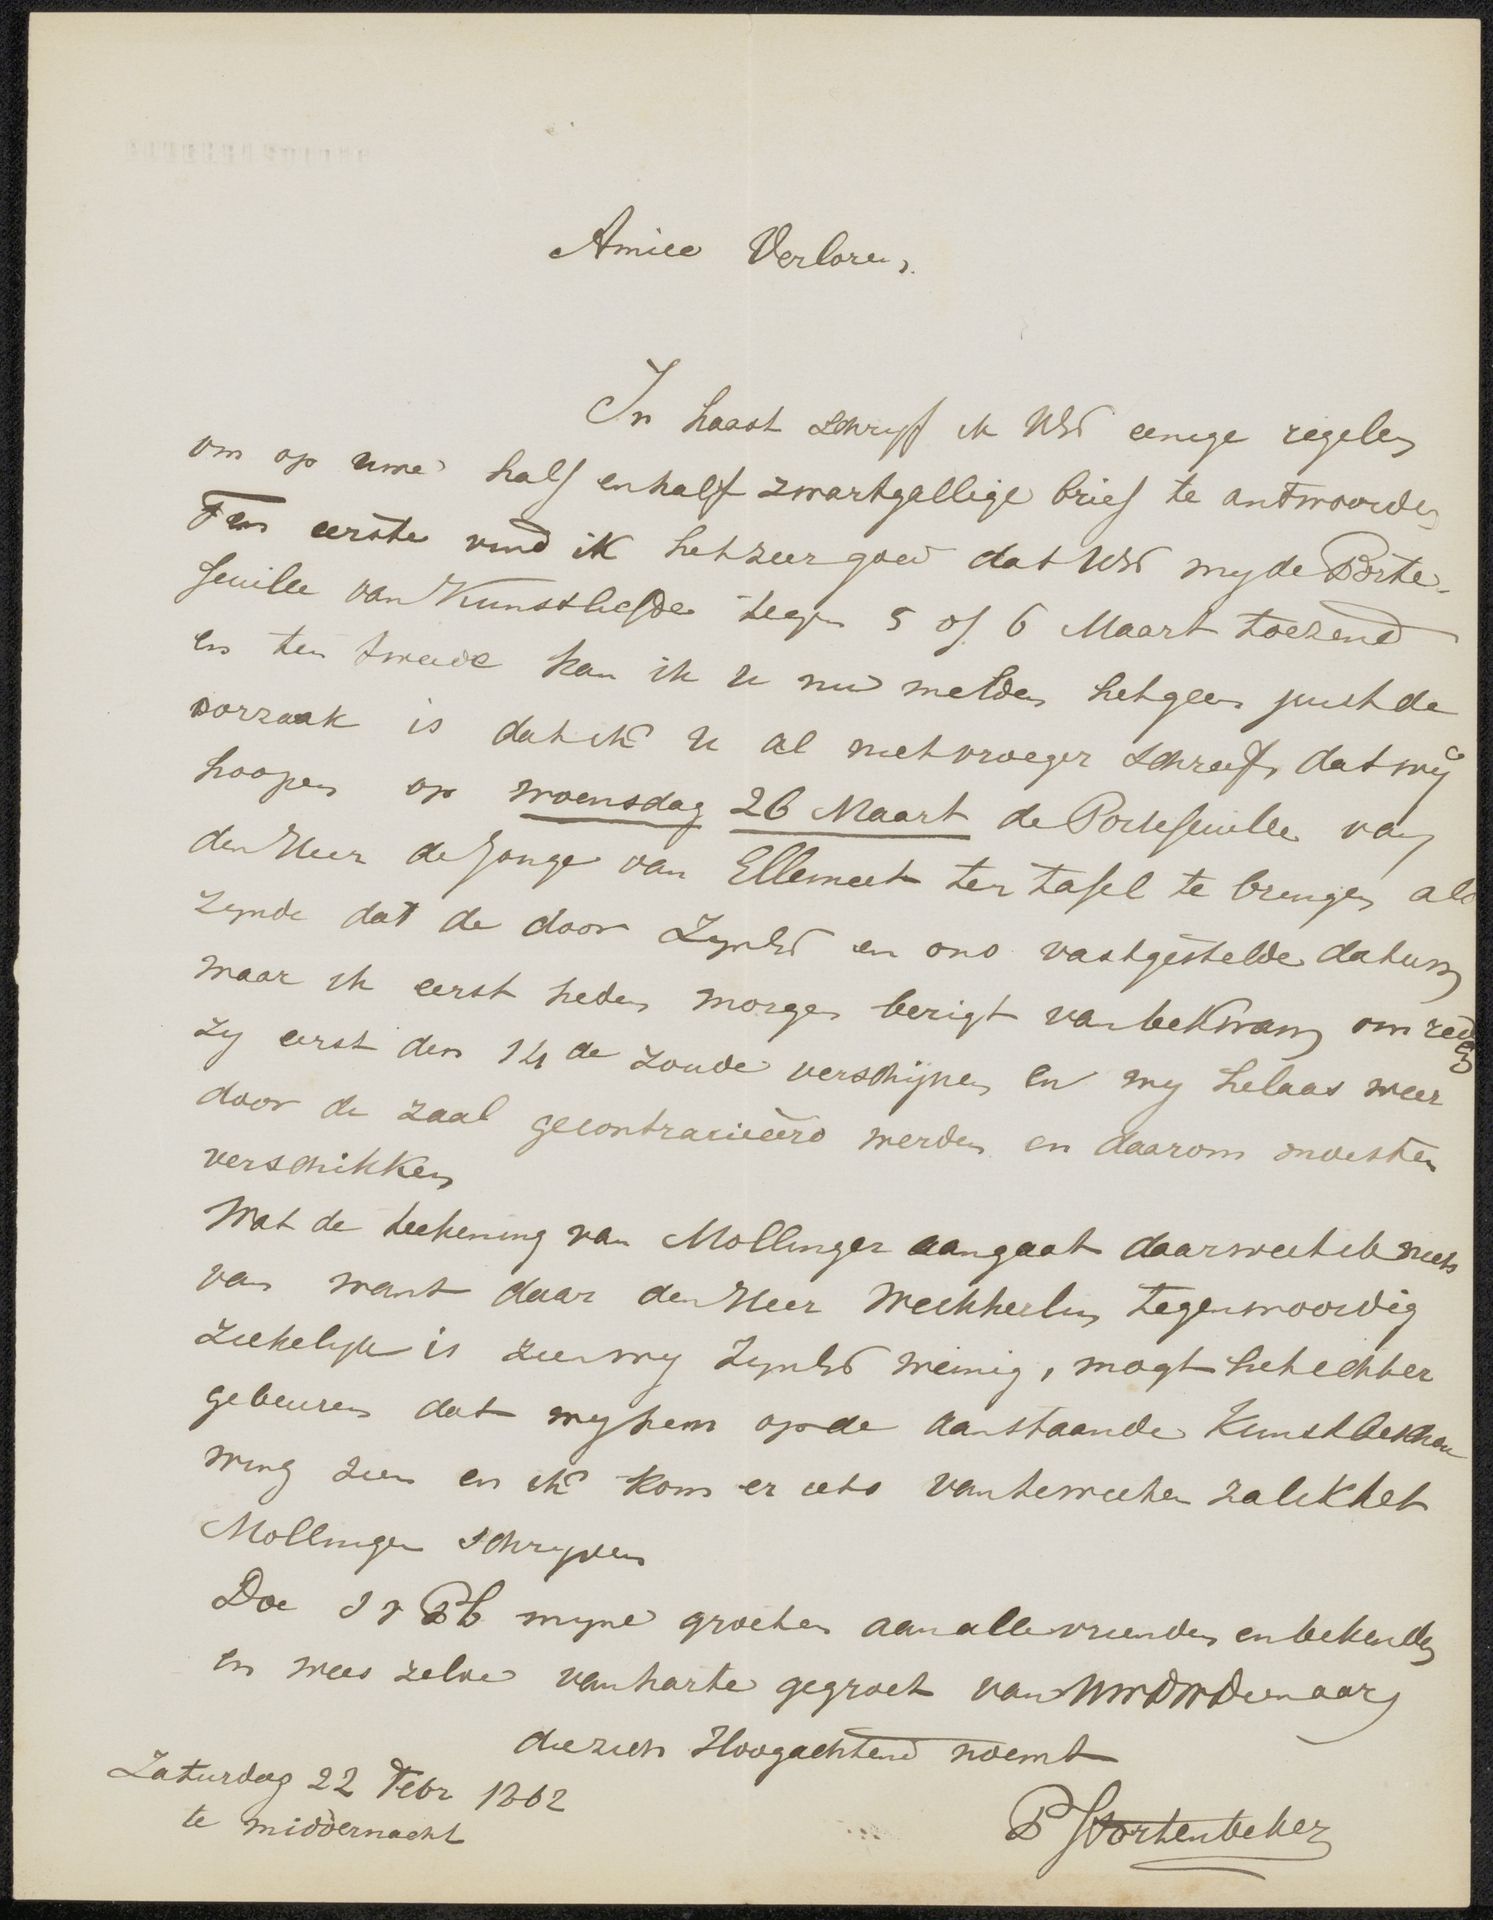 Amice Verloren,
In haast schryf ik UEd eenige regelen
om op uwe half en half zwartgallige brief te antwoorden
Ten eerste vind ik het zeer goed dat UEd my de Porte-
feuille van Kunstliefde tegen 5 of 6 Maart toezend
en ten tweede kan ik u nu melden hetgeen juist de
oorzaak is dat ik u al niet vroeger schreef, dat wij
hoopen op woensdag 26 Maart de Portefeuille van
den Heer de Jonge van Ellemeet ter tafel te brengen als
zynde dat de door ZynEd en ons vastgestelde datum
waar ik eerst heden morgen berigt van bekwam om reden
zy eerst den 14de zoude verschijnen en wy helaas weer
door de zaal gecontrarieerd werden en daarom moesten
verschikken
Wat de teekening van Mollinger aangaat daar weet ik niets
van want daar den Heer Weckherlin tegenwoordig
ziekelyk is zien wy ZynEd weinig, mogt het echter
gebeuren dat wy hem op de aanstaande Kunstbeschou
wing zien en ik kom er iets van te weeten zal ik het
Mollinger schryven
Doe myne groeten aan alle vrienden en bekenden
en wees zelve van harte gegroet van UwDWDienaar
die zich Hoogachtend noemt
Zaturdag 22 Febr 1862
te middernacht
P Stortenbeker